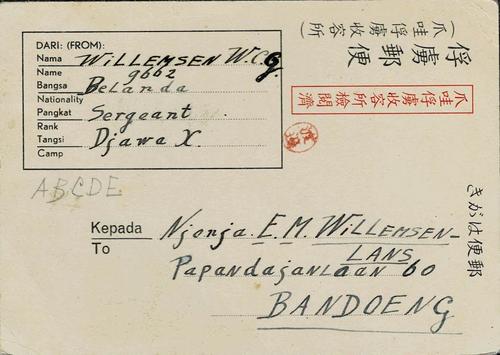 DARI: (FROM):
Nama WILLEMSEN W.C.G.
Name 9662
Bangsa Belanda
Nationality
Pangkat Sergeant
Rank
Tangsi Djawa X.
Camp
(爪哇俘虜收容所)
俘虜郵便
爪哇俘虜收容所檢閲濟
きがは便郵
ABCDE
Kepada Njonja E.M. WILLEMSEN-
To
LANS
Papandajanlaan 60
BANDOENG